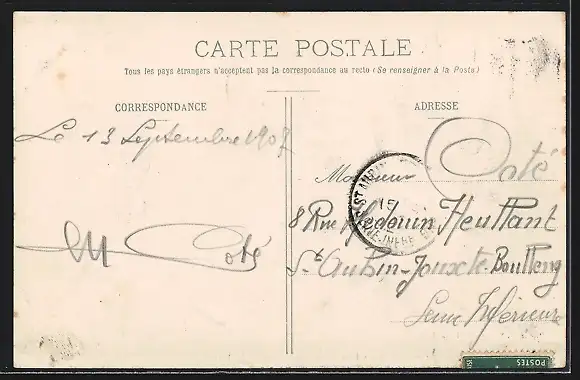 CARTE POSTALE
Tous les pays étrangers n'acceptent pas la correspondance au recto (Se renseigner à la Poste)
CORRESPONDANCE
Le 13 Septembre 1907
Coté
ADRESSE
Monsieur Coté
8 Rue Hédouin Heullant
St Aubin-Jouxte-Boulleng
Seine Inférieure
ST AUBIN
15
POSTES